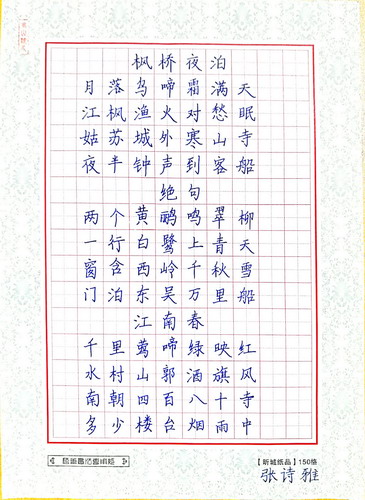 枫桥夜泊
月落乌啼霜满天
江枫渔火对愁眠
姑苏城外寒山寺
夜半钟声到客船
绝句
两个黄鹂鸣翠柳
一行白鹭上青天
窗含西岭千秋雪
门泊东吴万里船
江南春
千里莺啼绿映红
水村山郭酒旗风
南朝四百八十寺
多少楼台烟雨中
【昕城纸品】150格
张诗雅